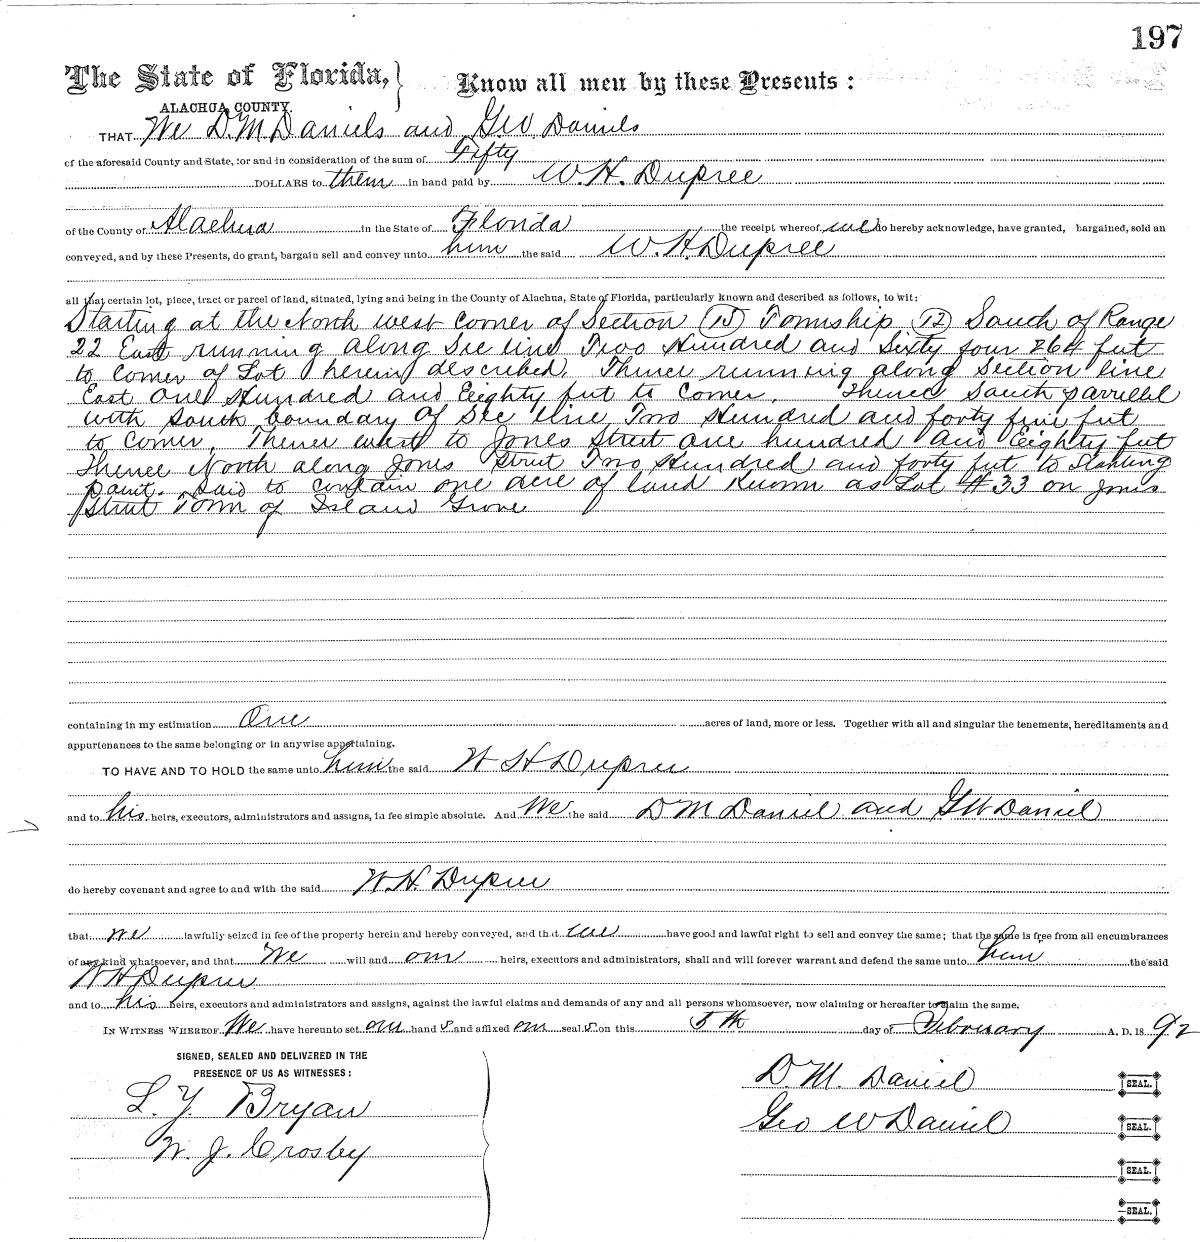 197
The State of Florida,} Know all men by these Presents:
ALACHUA COUNTY.
THAT We D.M Daniels and G.W. Daniels
of the aforesaid County and State, for and in consideration of the sum of Fifty
DOLLARS to them in hand paid by W.H. Dupree
of the County of Alachua in the State of Florida the receipt whereof we do hereby acknowledge, have granted, bargained, sold an
conveyed, and by these Presents, do grant, bargain sell and convey unto him the said W.H. Dupree
all that certain lot, piece, tract or parcel of land, situated, lying and being in the County of Alachua, State of Florida, particularly known and described as follows, to wit:
Starting at the North west Corner of Section (15) Township (12) South of Range
22 East running along Sec line Two Hundred and Sixty four 264 feet
to Corner of Lot herein described. Thence running along Section line
East One Hundred and Eighty feet to Corner. Thence South parrellel
with South boundary of Sec line Two Hundred and forty five feet
to Corner. Thence west to Jones Street one hundred and Eighty feet
Thence North along Jones Street Two Hundred and forty feet to Starting
point. Said to contain one acre of land Known as Lot #33 on Jones
Street Town of Island Grove
containing in my estimation One acres of land, more or less. Together with all and singular the tenements, hereditaments and
appurtenances to the same belonging or in anywise appertaining.
TO HAVE AND TO HOLD the same unto him the said W H Dupree
and to his heirs, executors, administrators and assigns, in fee simple absolute. And We the said D M Daniel and G W Daniel
do hereby covenant and agree to and with the said W.H. Dupree
that we lawfully seized in fee of the property herein and hereby conveyed, and that we have good and lawful right to sell and convey the same; that the same is free from all encumbrances
of any kind whatsoever, and that We will and our heirs, executors and administrators, shall and will forever warrant and defend the same unto him the said
W H Dupree
and to his heirs, executors and administrators and assigns, against the lawful claims and demands of any and all persons whomsoever, now claiming or hereafter to claim the same.
IN WITNESS WHEREOF We have hereunto set our hand s and affixed our seal s on this 5th day of February A. D. 18 92
SIGNED, SEALED AND DELIVERED IN THE
PRESENCE OF US AS WITNESSES:
L. Y. Bryan
W. J. Crosby
D. M. Daniel SEAL.
Geo W Daniel SEAL.
SEAL.
SEAL.